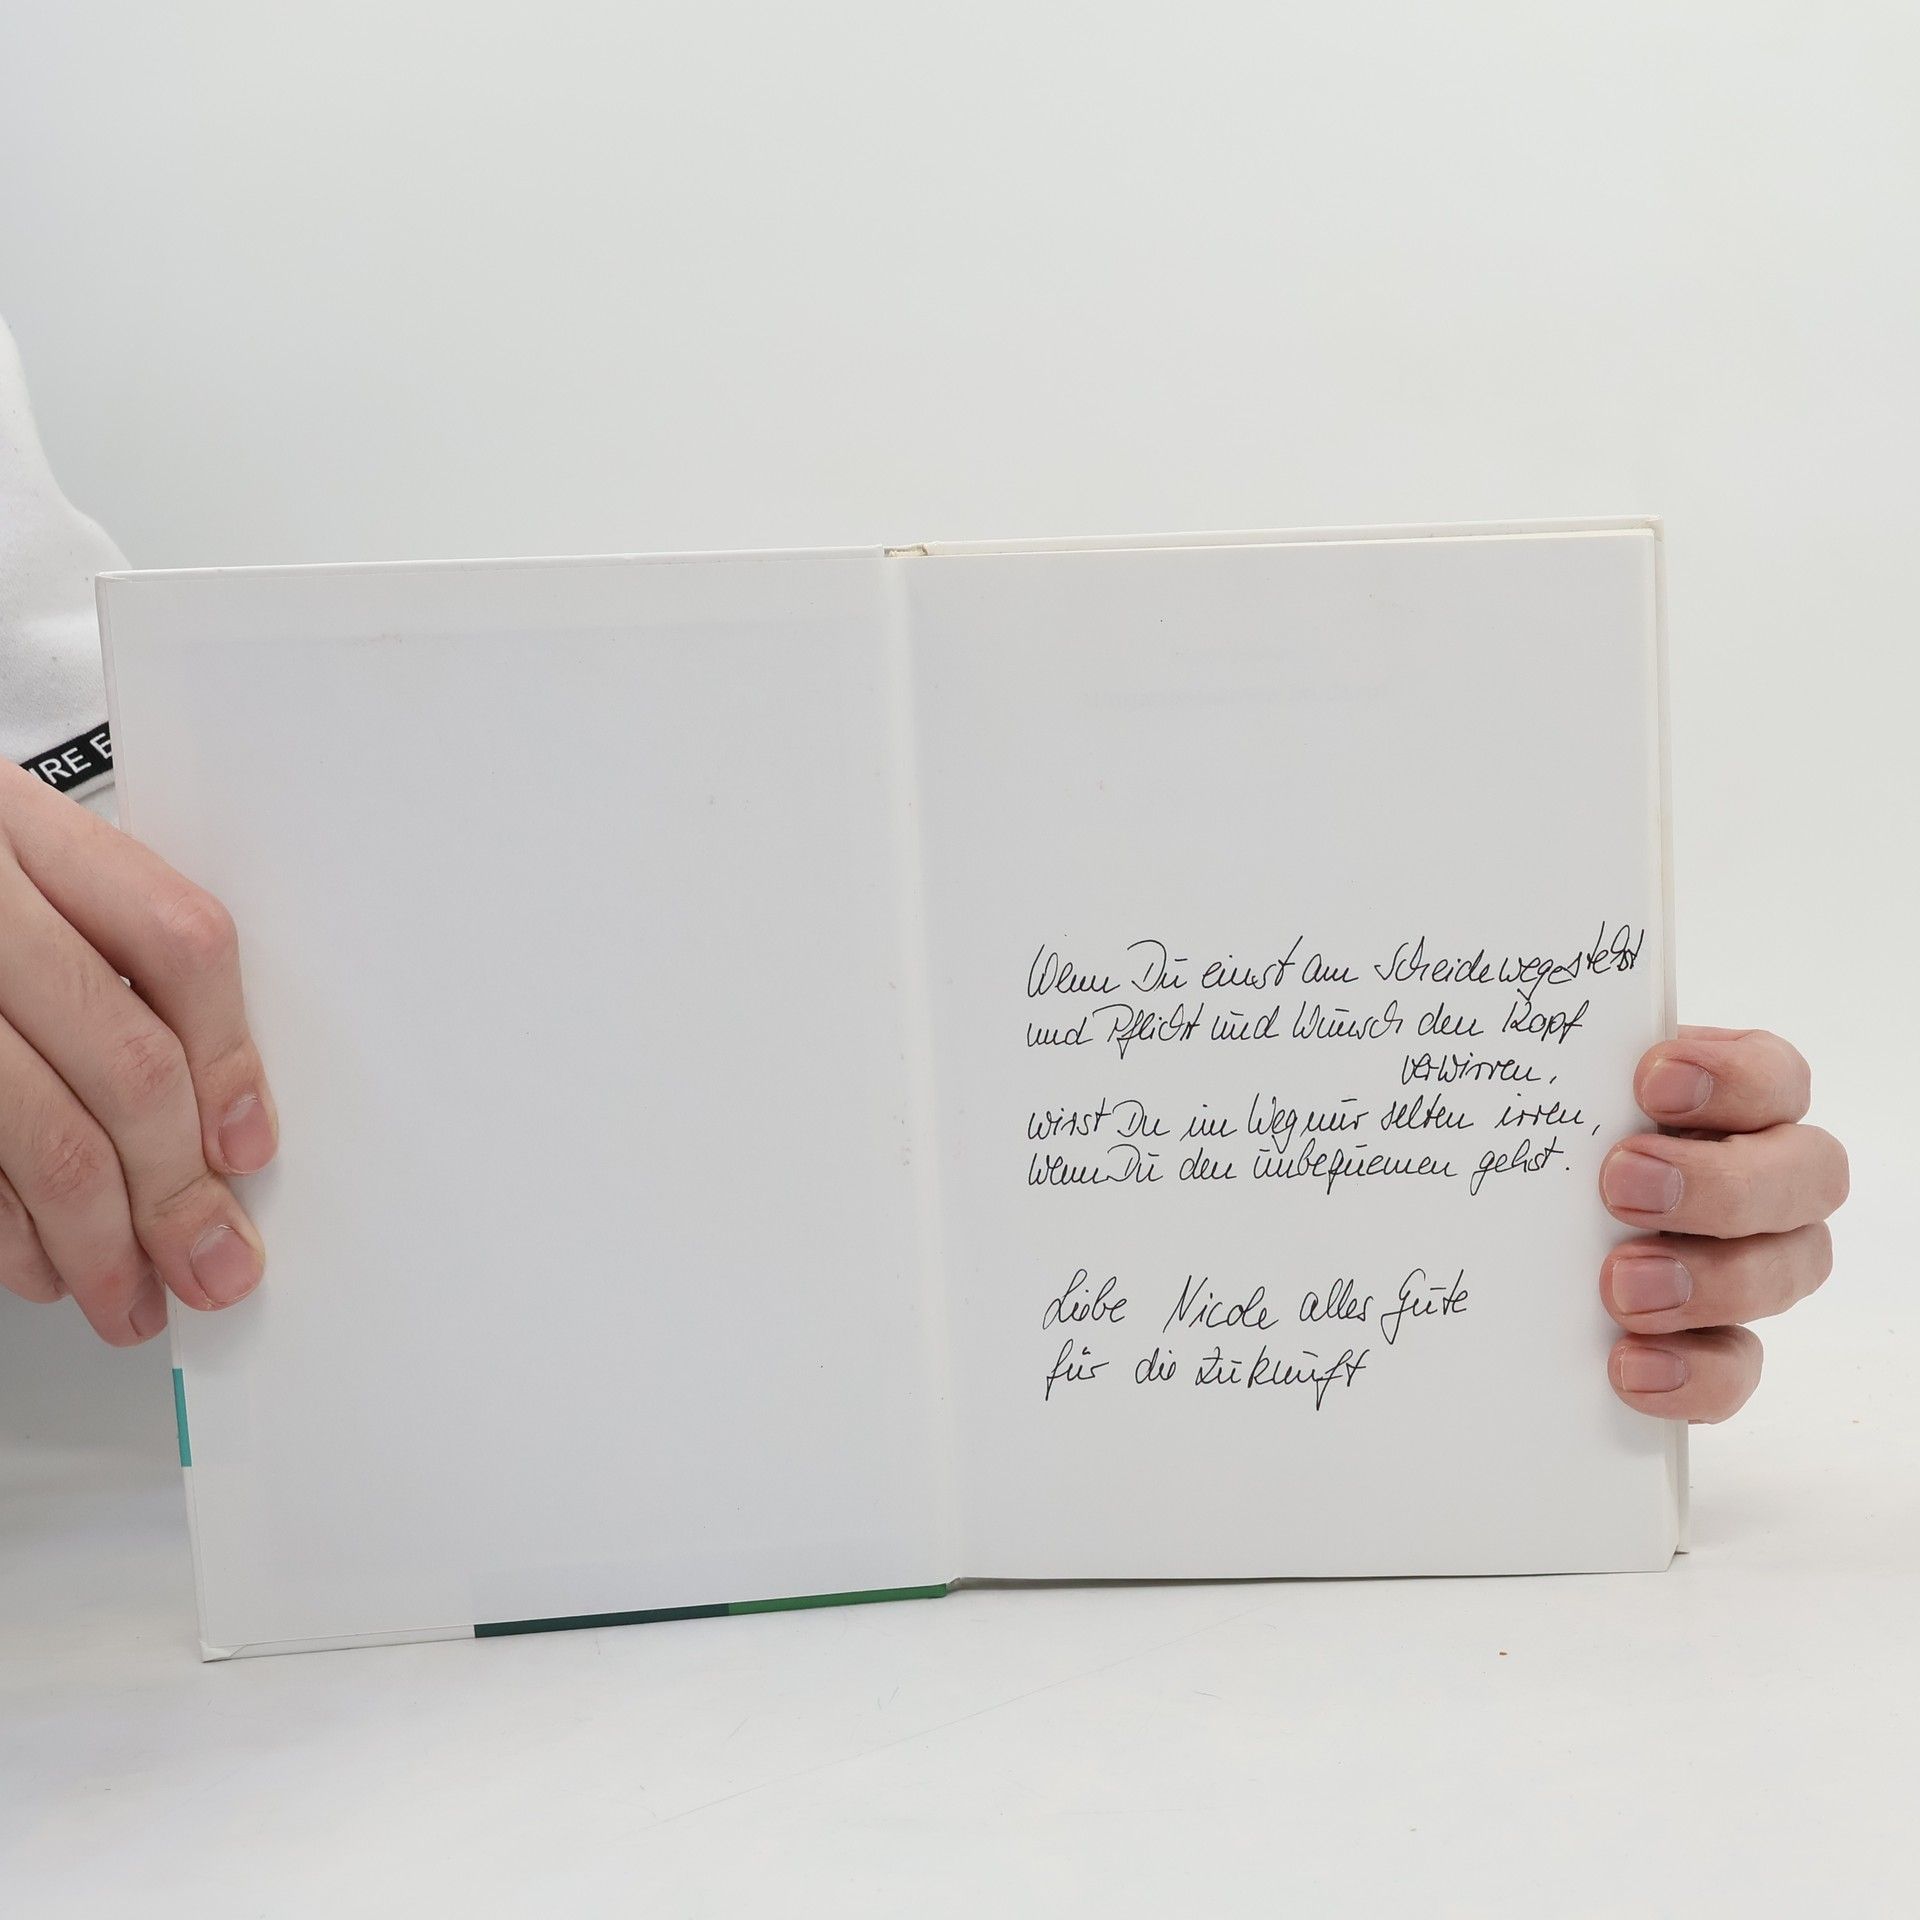 IRE E
Wenn Du einst am Scheidewege stehst
und Pflicht und Wunsch den Kopf
verwirren,
wirst Du im Weg nur selten irren,
wenn Du den unbequemen gehst.
Liebe Nicole alles Gute
für die Zukunft